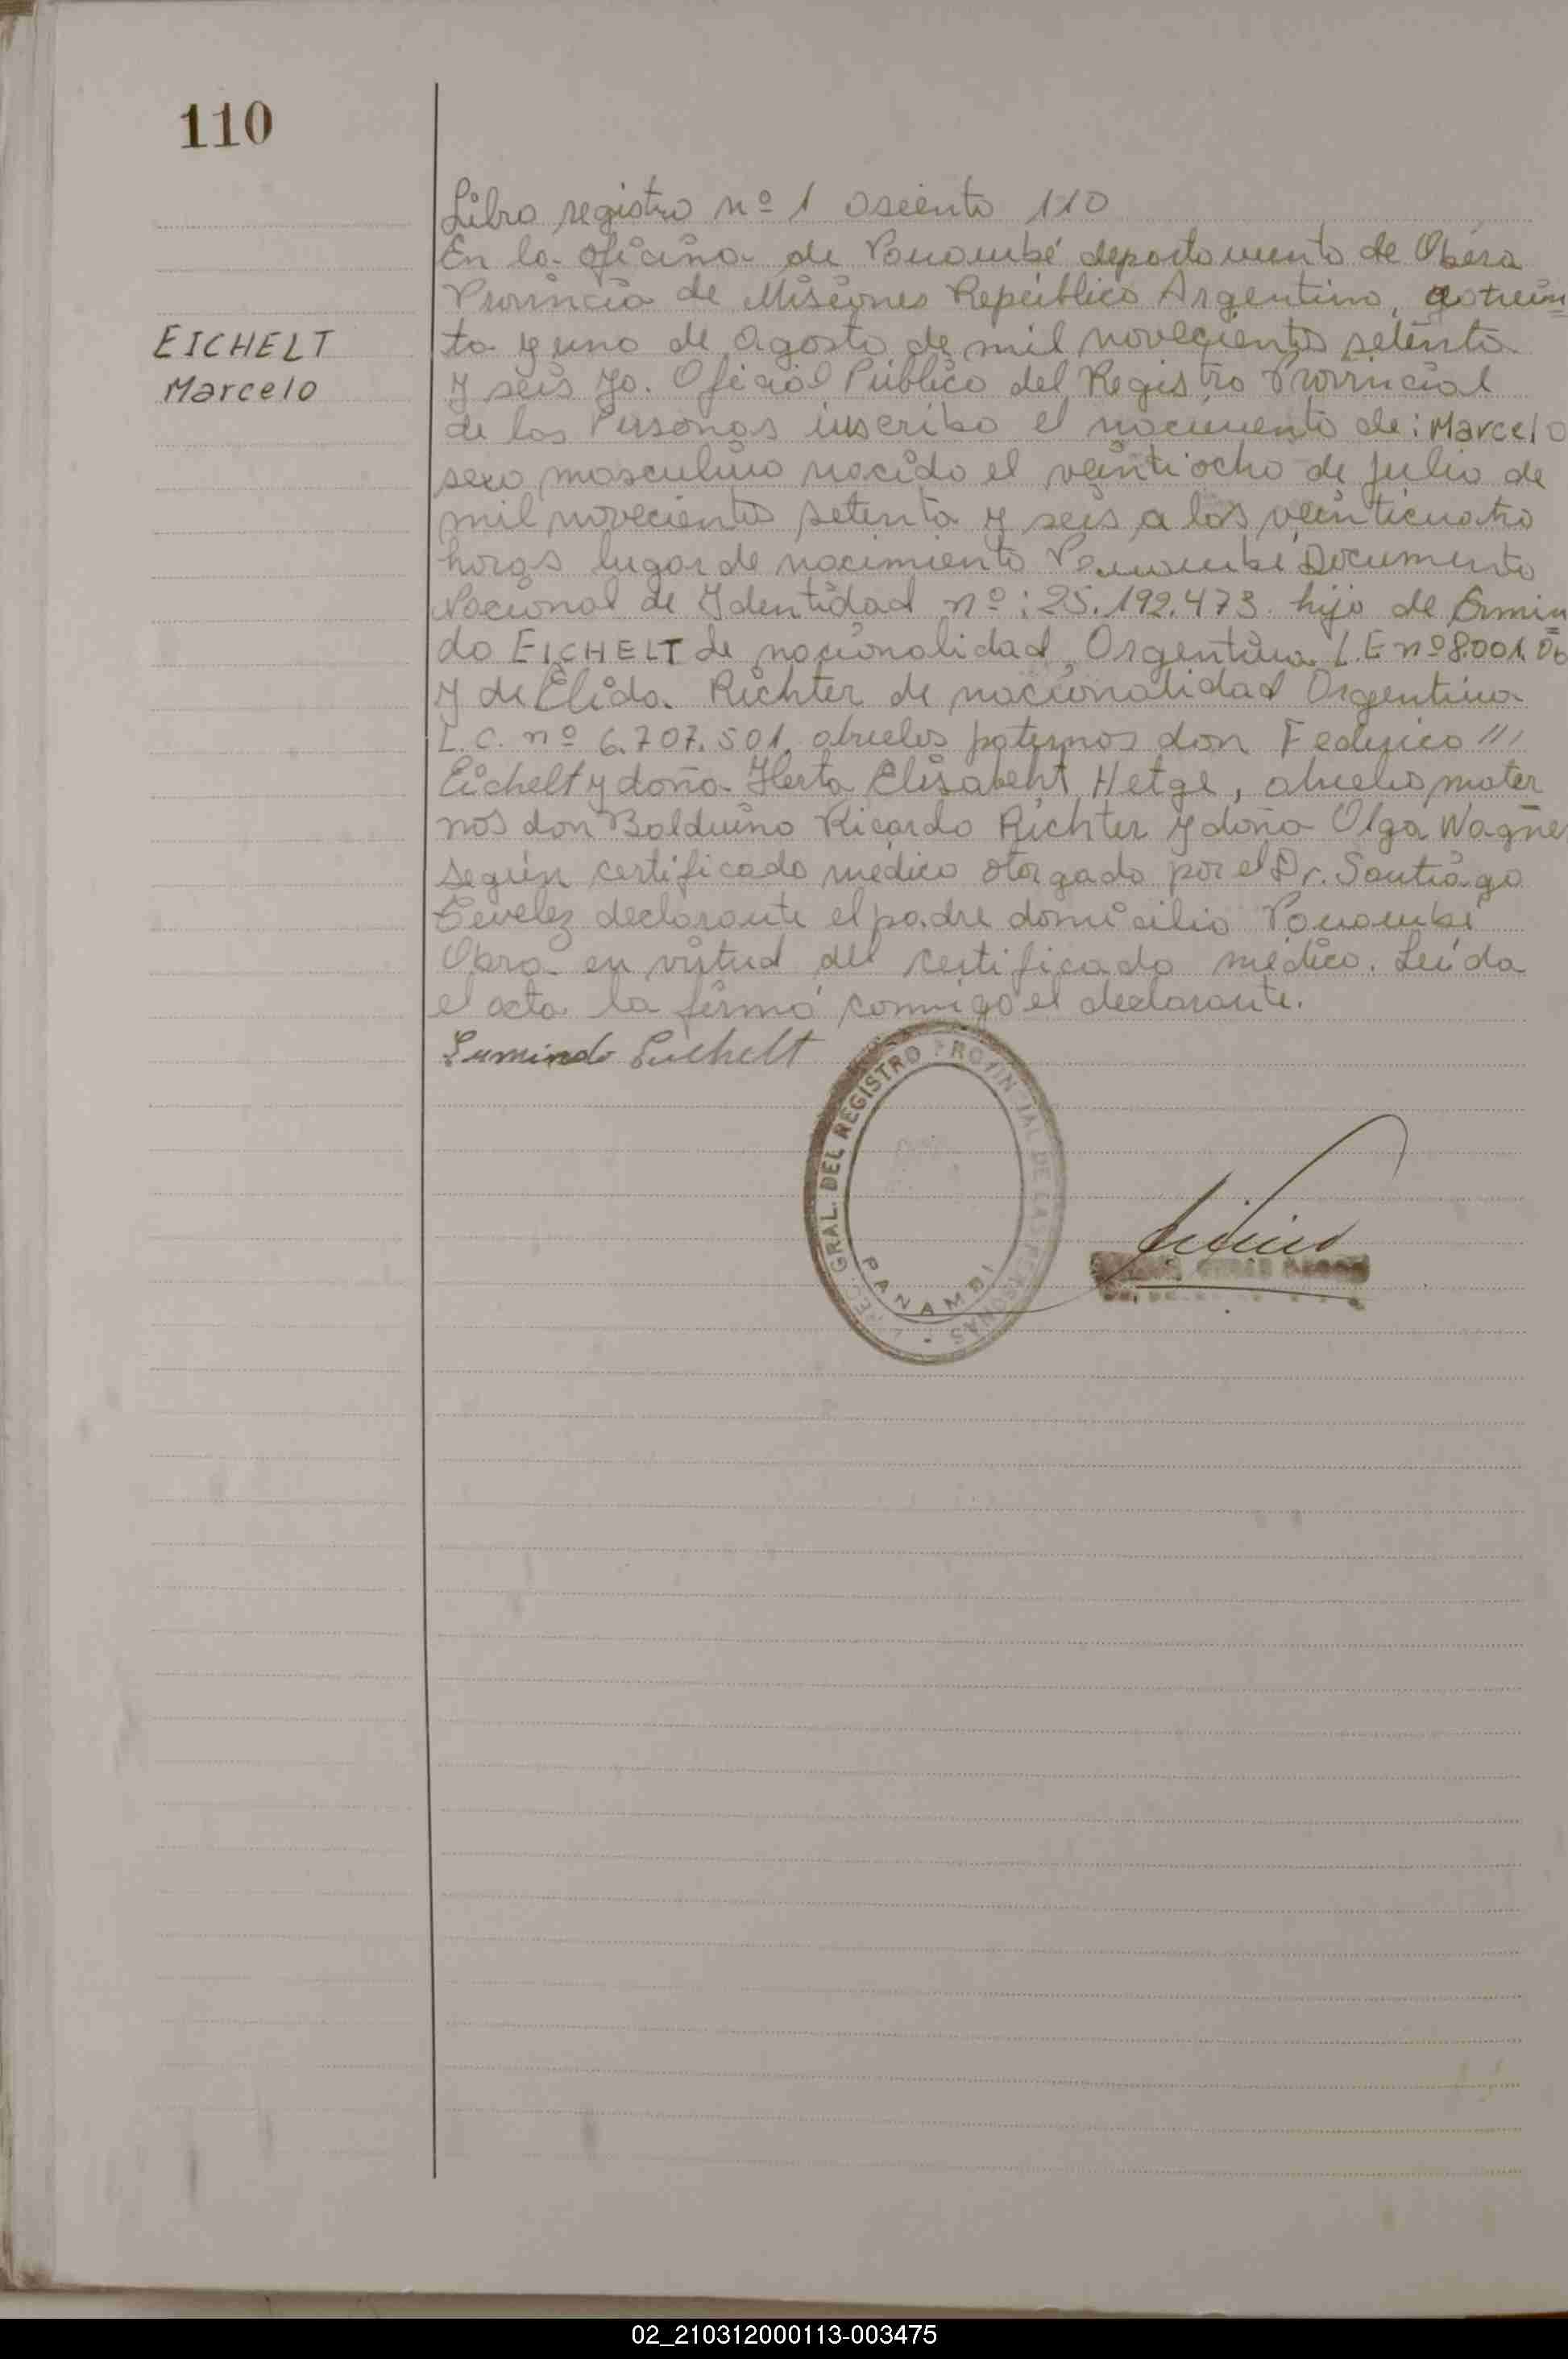 110
EICHELT
Marcelo
Libro registro nº 1 asiento 110
En la oficina de Panambí departamento de Oberá
Provincia de Misiones República Argentina, a trein=
ta y uno de agosto de mil novecientos setenta
y seis yo. Oficial Público del Registro Provincial
de las Personas inscribo el nacimiento de: Marcelo
sexo masculino nacido el veintiocho de julio de
mil novecientos setenta y seis a las veinticuatro
horas lugar de nacimiento Panambí Documento
Nacional de Identidad nº: 25.192.473 hijo de Ermin
do EICHELT de nacionalidad Argentina L.E nº 8.001.
y de Elida Richter de nacionalidad Argentina
L.C. nº 6.707.501, abuelos paternos don Federico
Eichelt y doña Herta Elisabeht Hetge, abuelos mater
nos don Balduino Ricardo Richter y doña Olga Wagne
según certificado médico otorgado por el Dr. Santiago
declarante el padre domicilio Panambí
Obra en virtud del certificado médico. Leída
el acta la firmó conmigo el declarante.
Eichelt
GRAL. DEL REGISTRO PROVINCIAL DE LAS PERSONAS
PANAMBI
02_210312000113-003475